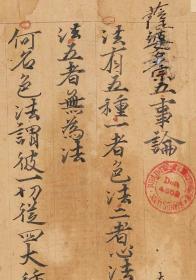 薩婆多宗五事論
法有五種一者色法二者心法
法五者無為法
何名色法謂彼一切從四大
Don
4502